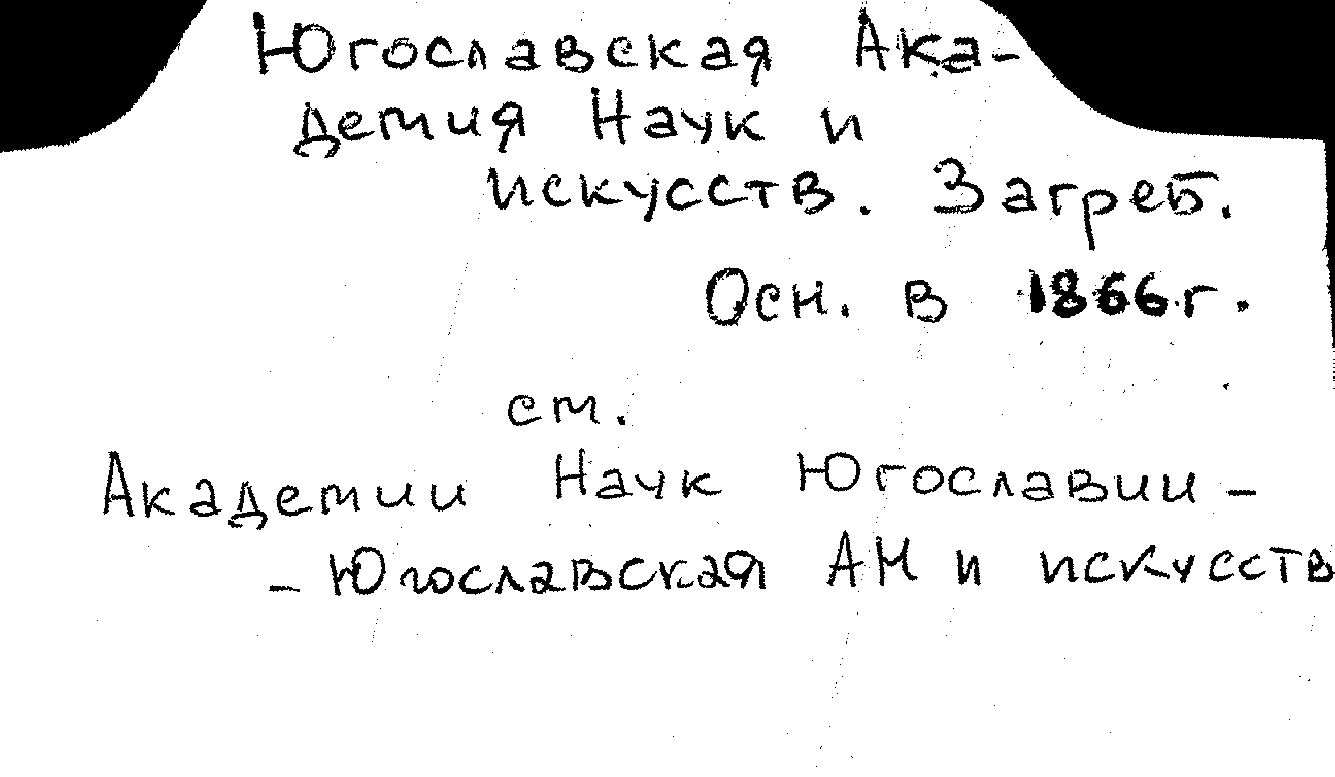 Югославская Ака-
демия Наук и
искусств. Загреб.
Осн. в 1866 г.
см.
Академии Наук Югославии -
- Югославская АН и искусств